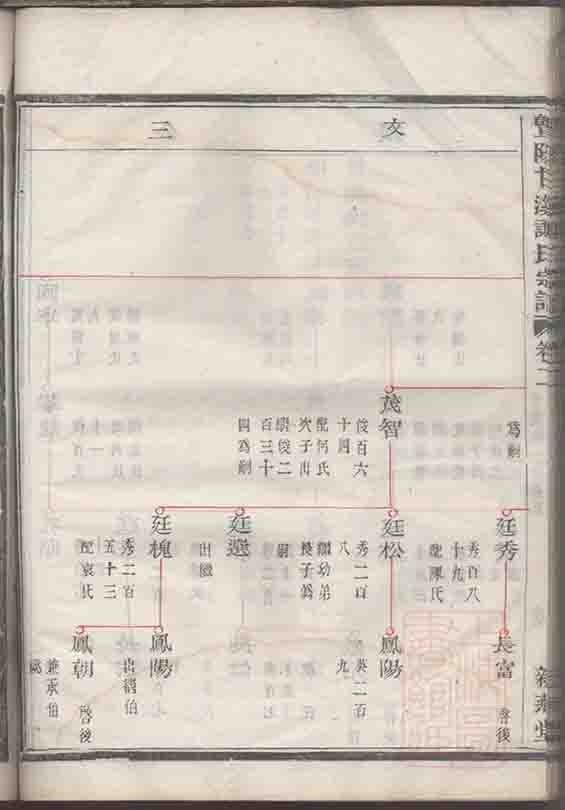 卷二
文
三
為嗣
茂智
俊百六
十四
配何氏
次子出
繼俊二
百三十
四為嗣
廷秀
秀百八
十九
配陳氏
廷松
秀二百
八
繼幼弟
長子為
嗣
廷選
出繼
廷槐
秀二百
五十三
配袁氏
長富
啓後
鳳陽
英二百
九
鳳陽
出繼伯
鳳朝
啓後
兼承伯